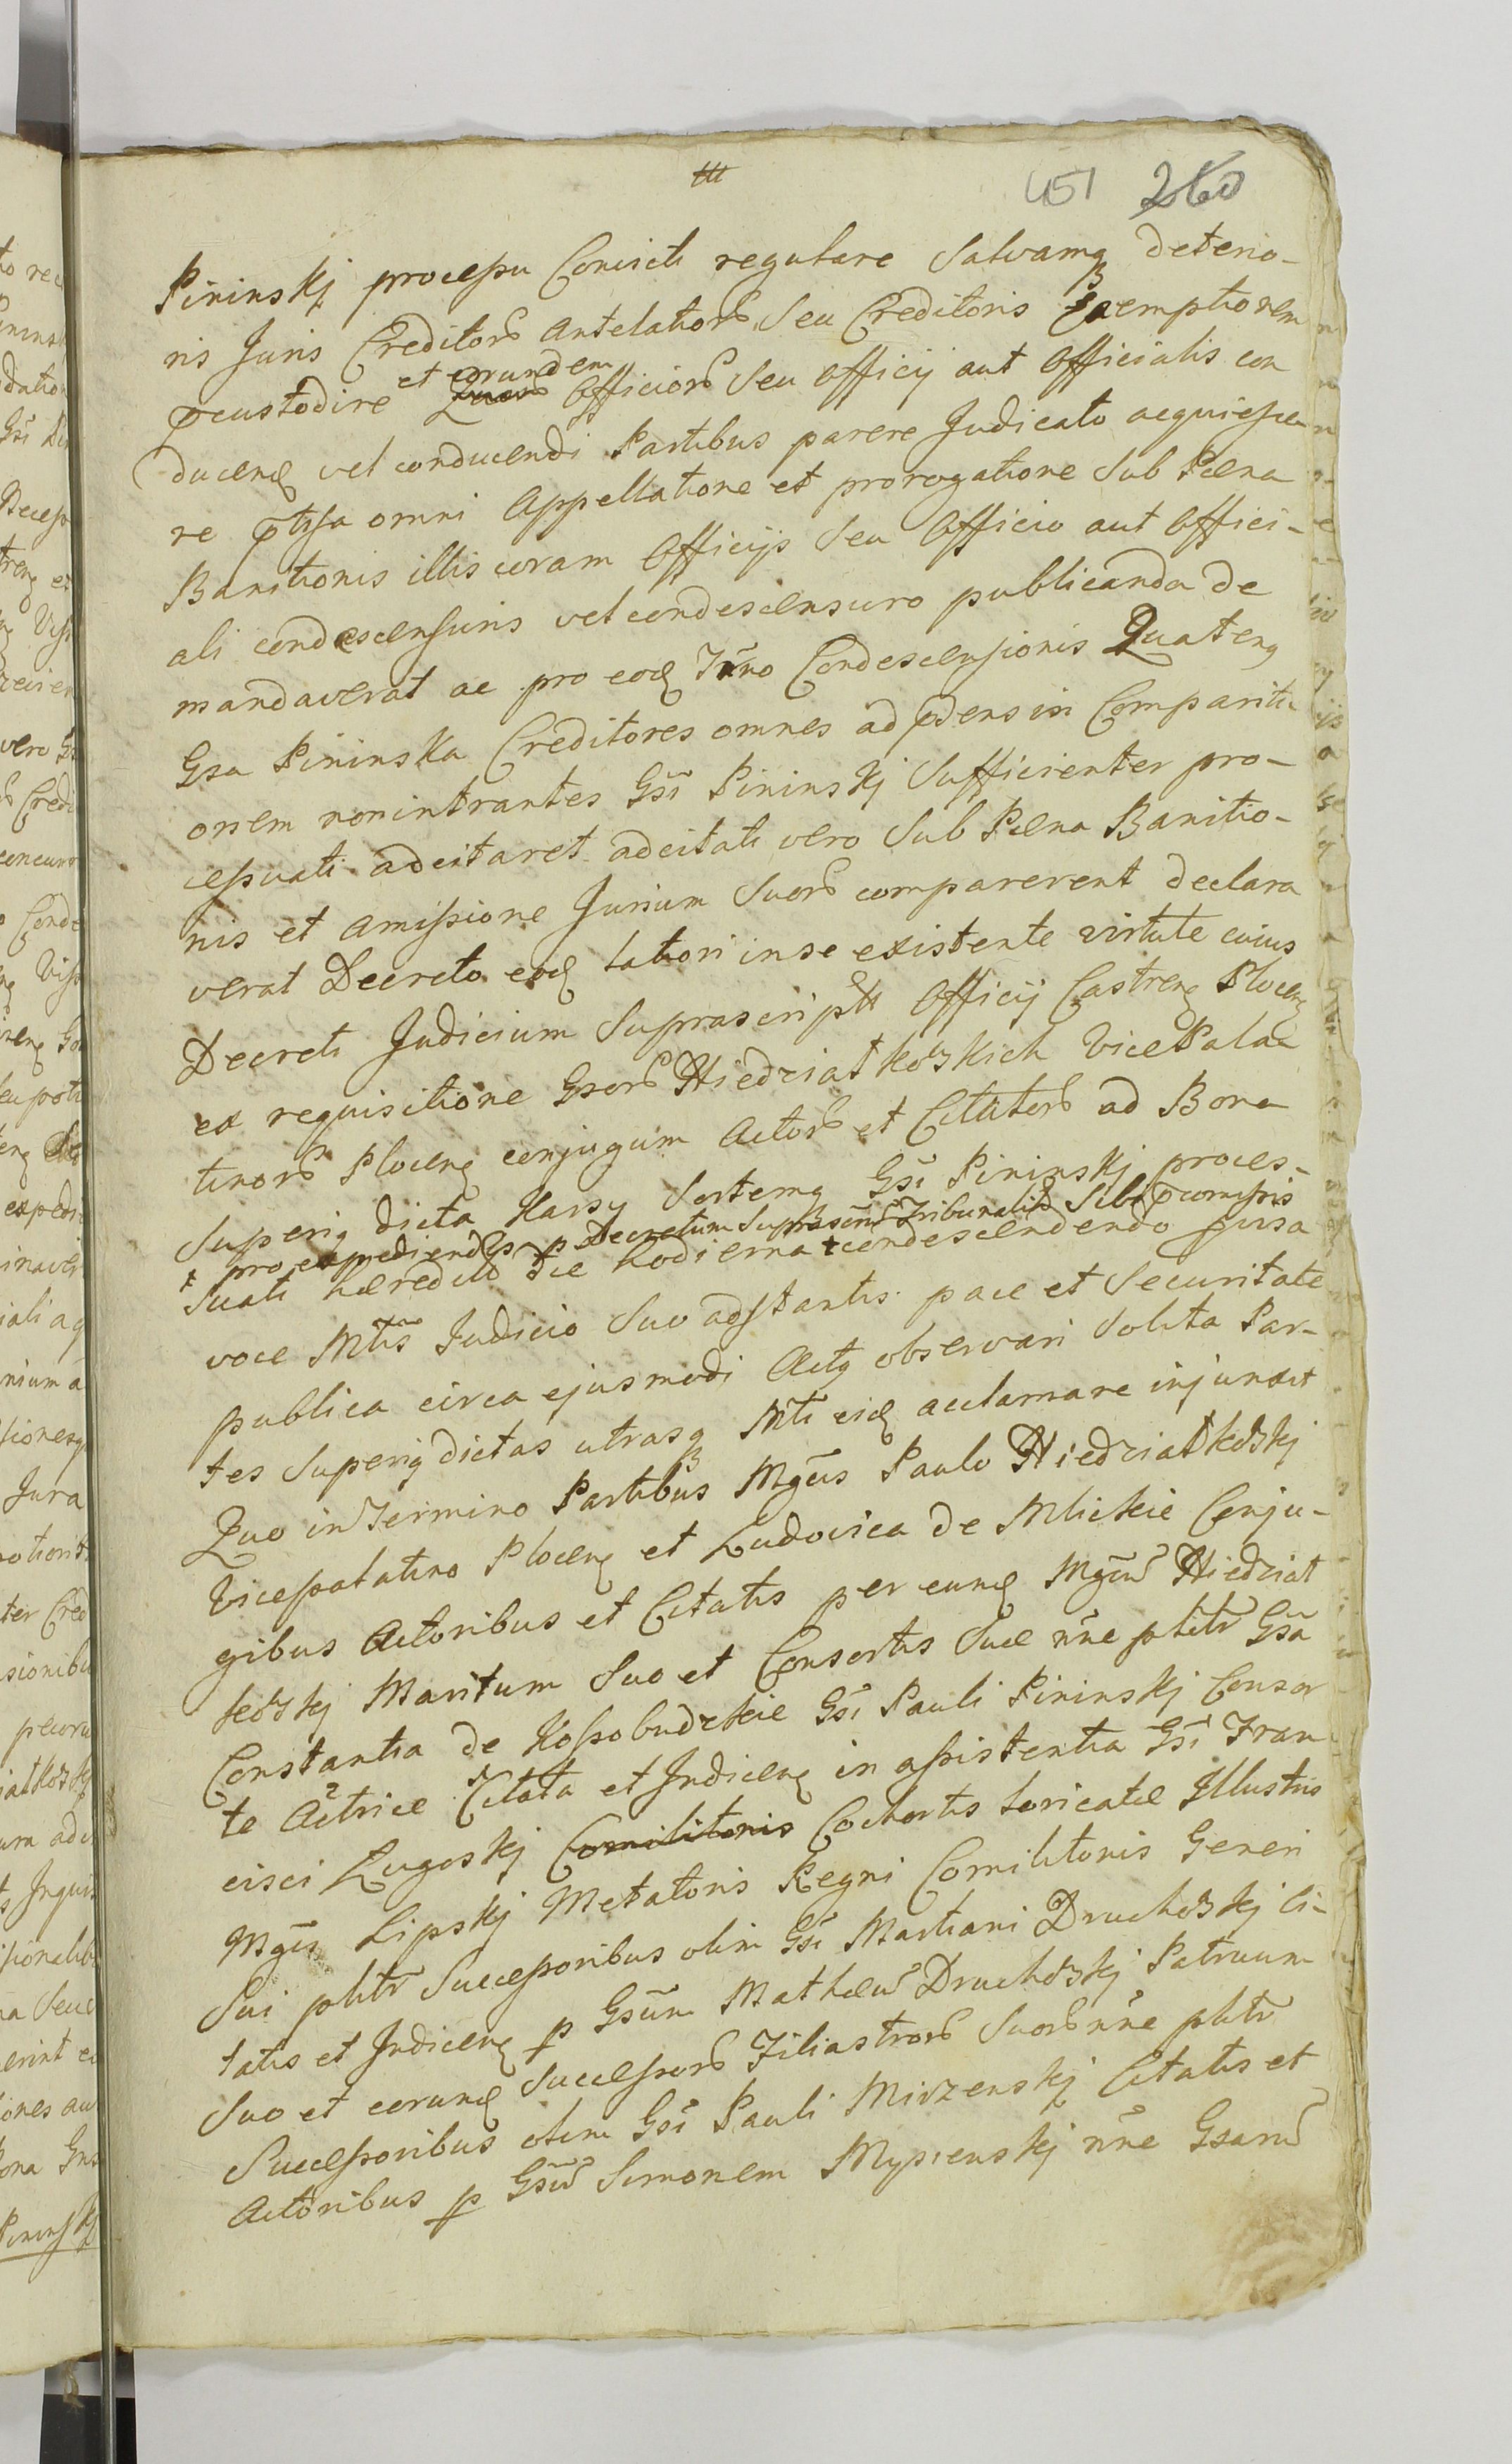 451 260
Pininskj processu Convicti regulare Salvamq̃ deterio-
ris Juris Creditorũ antelatiorũ, Seu Creditoris Exemptionem
p̄custodire et eorundem Officiorũ Seu Officij aut Officialis con
ducenẽ vel conducendi Partibus parere Judicato acquiesce
re p̄tssa omni Appellatione et prorogatione Sub Pæna
Banitionis illis coram Officijs Seu Officio aut Offici-
ali condescensuris vel condescensuro publicanda de
mandaverat ac pro eoẽ Tr̃no Condescensionis Quatenq
Gsa Pininska Creditores omnes ad p̄dens in Compariti
onem non intrantes Gsĩ Pininskj Sufficienter pro-
cessuati adcitaret adcitati vero Sub Pæna Banitio-
nis et amissione Jurium Suorũ comparerent declara
verat Decreto eoẽ latiori in se existente virtute cuius
Decreti Judicium Suprascriptũ Officij Castrenẽ Plocenẽ
ex requisitione Gsorũ Niedziałkoskich Vice Palac
tinorũ Plocenẽ conjugum Actorũ et Citatorũ ad Bona
Superiq dicta Karsy Sortemq Gsĩ Pininskj proces-
+ pro expediendis p Decretum Suprascriptũ Tribunalitiũ Sibi p̄comissis
Suati hæreditũ die hodierna + condescendendo fusa
voce Mtr̃s Judicio Suo adstantis pace et Securitate
publica circa ejusmodi Actq observari Solita Par-
tes Superiq dictas utrasq Mtr̃ eiẽ acclamare injunxit
Quo in Termino Partibus Mg̃cis Paulo Niedziałkoskj
Vicepalatino Plocenẽ et Ludovica de Mlickie Conju-
gibus Actoribus et Citatis per eunẽ Mg̃cũ Niedział
koskj Maritum Suo et Consortis Suæ nñe plitr̃ Gsã
Constantia de Kossobudzkie Gsĩ Pauli Pininskj Consor
te Actrice Citata et Indicenẽ in assistentia Gsĩ Fran
cisci Lugoskj Comilitonis Cohortis Loricatæ Illustris
Mg̃ci Lipskj Metatoris Regni Comilitonis Generi
Sui plitr̃ Successoribus olim Gsĩ Martiani Druchoskj Ci-
tatis et Indicenẽ p Gsũm Mathæũ Druchoskj Patruum
Suo et eorunẽ Successorũ Filiastrorũ Suorũ nñe plitr̃
Successoribus olim Gsĩ Pauli Mirzenskj Citatis et
Actoribus p Gsũ Simonem Myszenskj nñe Gsarũ